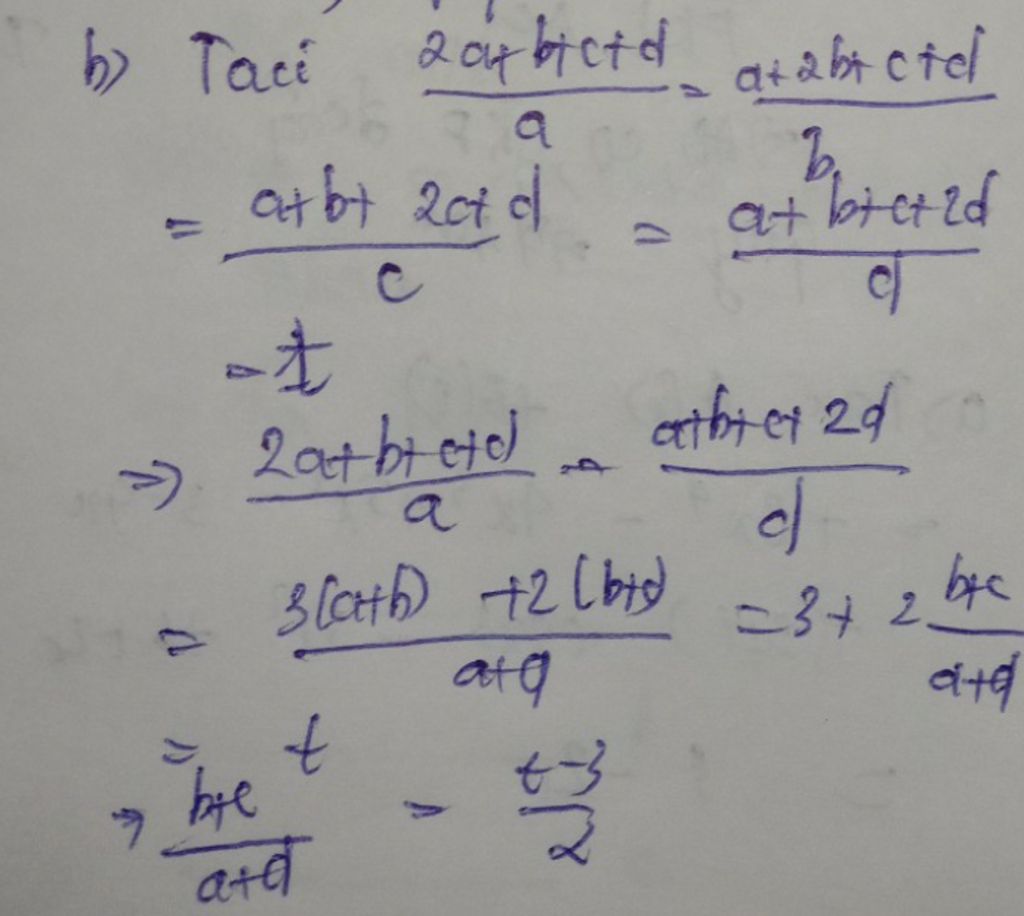 b) Taci (2a+b+c+d)/a = (a+2b+c+d)/b
= (a+b+2c+d)/c = (a+b+c+2d)/d
= t
=> (2a+b+c+d)/a = (a+b+c+2d)/d
= (3(a+b) +2(b+c))/(a+d) = 3+2 (b+c)/(a+d)
= t
=> (b+c)/(a+d) = (t-3)/2